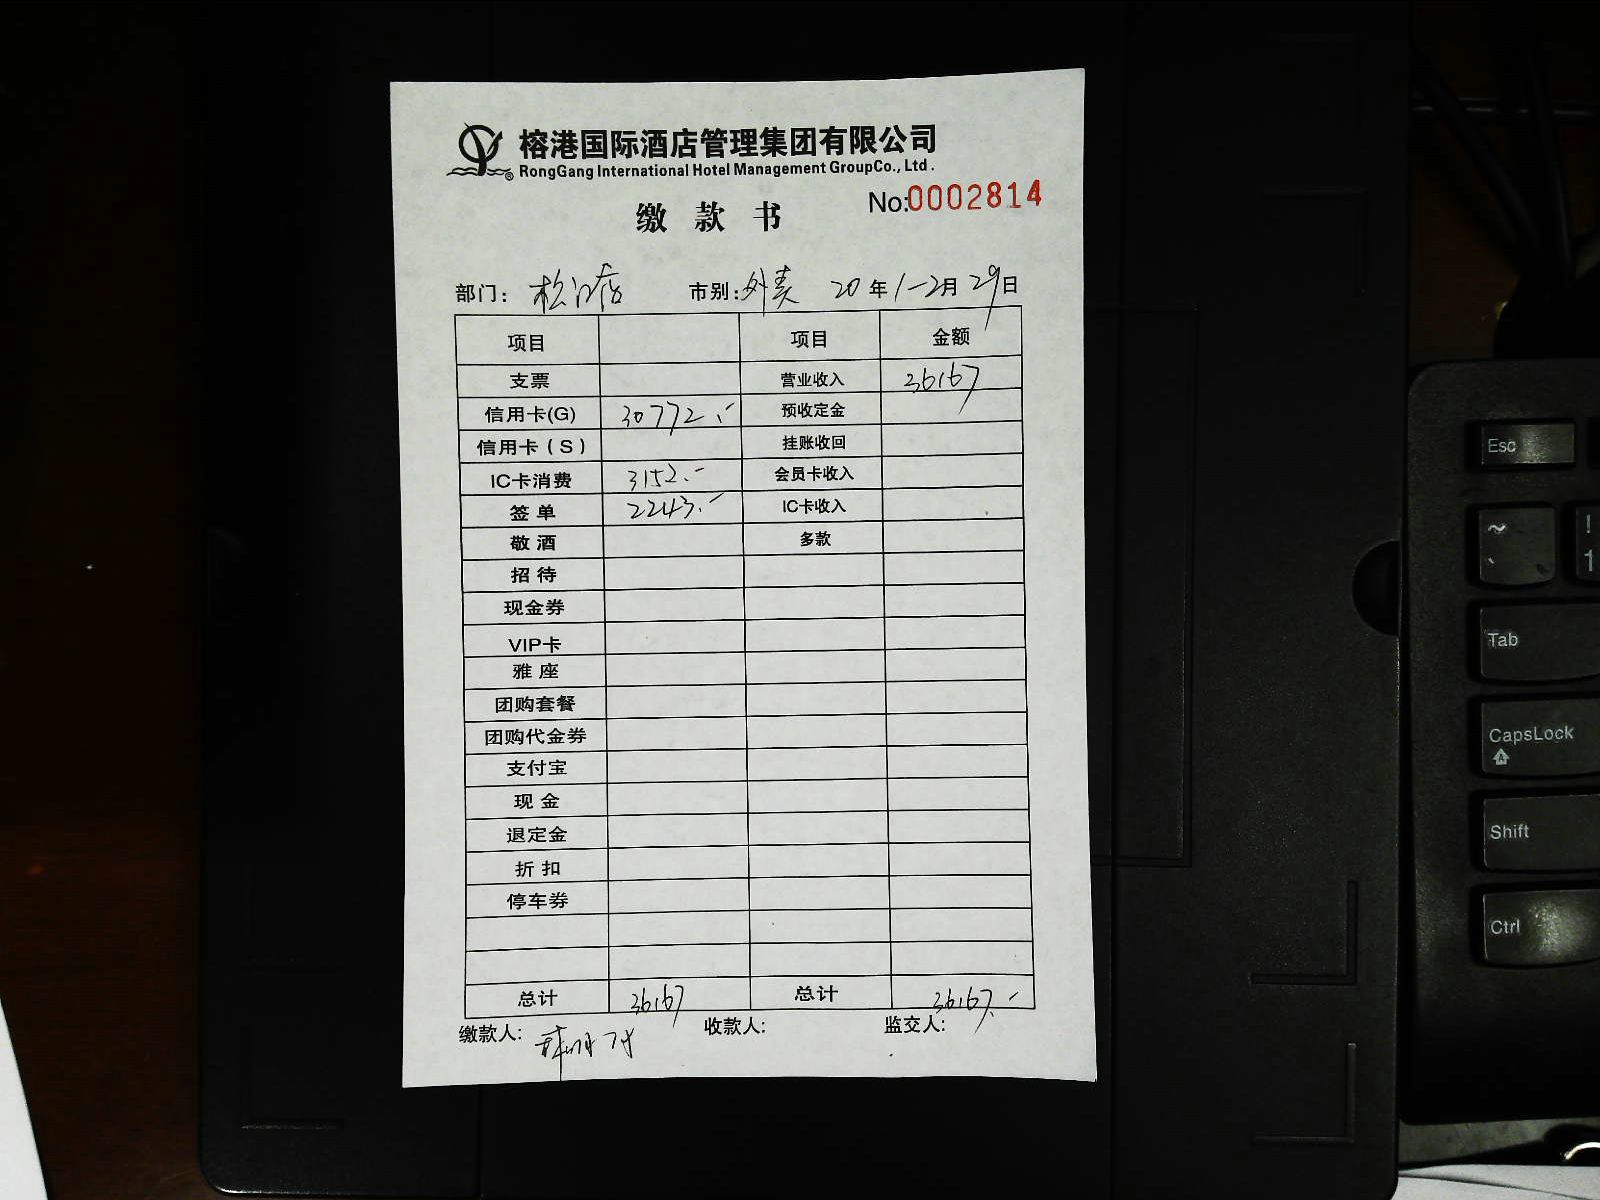 榕港国际酒店管理集团有限公司
® RongGang International Hotel Management GroupCo., Ltd .
No:0002814
缴 款 书
部门: 松江店 市别: 外卖 20 年 1-2月 29日
项目 项目 金额
支票 营业收入 36167
信用卡(G) 30772.- 预收定金
信用卡(S) 挂账收回
IC卡消费 3152.- 会员卡收入
签 单 2243.- IC卡收入
敬 酒 多款
招 待
现金券
VIP卡
雅 座
团购套餐
团购代金券
支付宝
现 金
退定金
折 扣
停车券
总计 36167 总计 36167.-
缴款人: 收款人: 监交人:
Esc
~
`
!
1
Tab
CapsLock
Shift
Ctrl